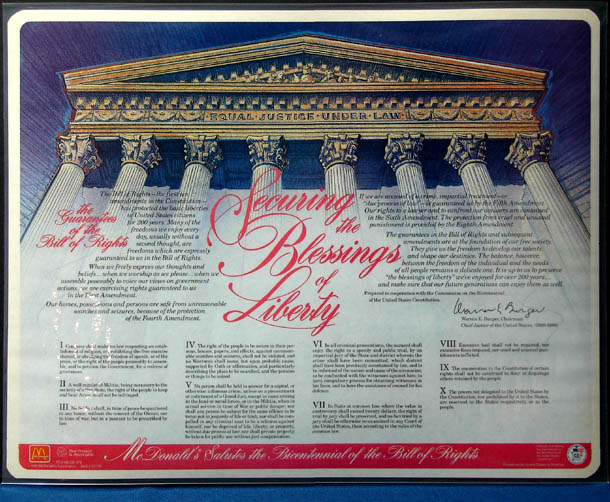 EQUAL JUSTICE UNDER LAW
Securing
the
Blessings
of
Liberty
the
Guarantees
of the
Bill of Rights
The Bill of Rights—the first ten
amendments to the Constitution—
has protected the basic liberties
of United States citizens
for 200 years. Many of the
freedoms we enjoy every
day, usually without a
second thought, are
freedoms which are expressly
guaranteed to us in the Bill of Rights.
When we freely express our thoughts and
beliefs...when we worship as we please...when we
assemble peaceably to voice our views on government
actions, we are exercising rights guaranteed to us
in the First Amendment.
Our homes, possessions and persons are safe from unreasonable
searches and seizures, because of the protection
of the Fourth Amendment.
If we are accused of a crime, impartial treatment—or
"due process of law"—is guaranteed us by the Fifth Amendment.
Our rights to a lawyer and to confront our accusers are contained
in the Sixth Amendment. The protection from cruel and unusual
punishment is provided by the Eighth Amendment.
The guarantees in the Bill of Rights and subsequent
amendments are at the foundation of our free society.
They give us the freedom to develop our talents
and shape our destinies. The balance, however,
between the freedom of the individual and the needs
of all people remains a delicate one. It is up to us to preserve
"the blessings of liberty" we've enjoyed for over 200 years...
and make sure that our future generations can enjoy them as well.
Prepared in cooperation with the Commission on the Bicentennial
of the United States Constitution.
Warren E. Burger
Warren E. Burger, Chairman
Chief Justice of the United States, (1969-1986)
I Congress shall make no law respecting an establishment
of religion, or prohibiting the free exercise
thereof, or abridging the freedom of speech, or of the
press, or the right of the people peaceably to assemble,
and to petition the Government, for a redress of
grievances.
II A well regulated Militia, being necessary to the
security of a free State, the right of the people to keep
and bear Arms, shall not be infringed.
III No Soldier shall, in time of peace be quartered
in any house, without the consent of the Owner, nor
in time of war, but in a manner to be prescribed by
law.
IV The right of the people to be secure in their persons,
houses, papers, and effects, against unreasonable
searches and seizures, shall not be violated, and
no Warrants shall issue, but upon probable cause,
supported by Oath or affirmation, and particularly
describing the place to be searched, and the persons
or things to be seized.
V No person shall be held to answer for a capital, or
otherwise infamous crime, unless on a presentment
or indictment of a Grand Jury, except in cases arising
in the land or naval forces, or in the Militia, when in
actual service in time of War or public danger; nor
shall any person be subject for the same offence to be
twice put in jeopardy of life or limb, nor shall be compelled
in any criminal case to be a witness against
himself, nor be deprived of life, liberty, or property,
without due process of law; nor shall private property
be taken for public use without just compensation.
VI In all criminal prosecutions, the accused shall
enjoy the right to a speedy and public trial, by an
impartial jury of the State and district wherein the
crime shall have been committed, which district
shall have been previously ascertained by law, and to
be informed of the nature and cause of the accusation;
to be confronted with the witnesses against him; to
have compulsory process for obtaining witnesses in
his favor, and to have the assistance of counsel for his
defence.
VII In Suits at common law, where the value in
controversy shall exceed twenty dollars, the right of
trial by jury shall be preserved, and no fact tried by a
jury shall be otherwise re-examined in any Court of
the United States, than according to the rules of the
common law.
VIII Excessive bail shall not be required, nor
excessive fines imposed, nor cruel and unusual punishments
inflicted.
IX The enumeration in the Constitution of certain
rights shall not be construed to deny or disparage
others retained by the people.
X The powers not delegated to the United States by
the Constitution, nor prohibited by it to the States,
are reserved to the States respectively, or to the
people.
McDonald's Salutes the Bicentennial of the Bill of Rights